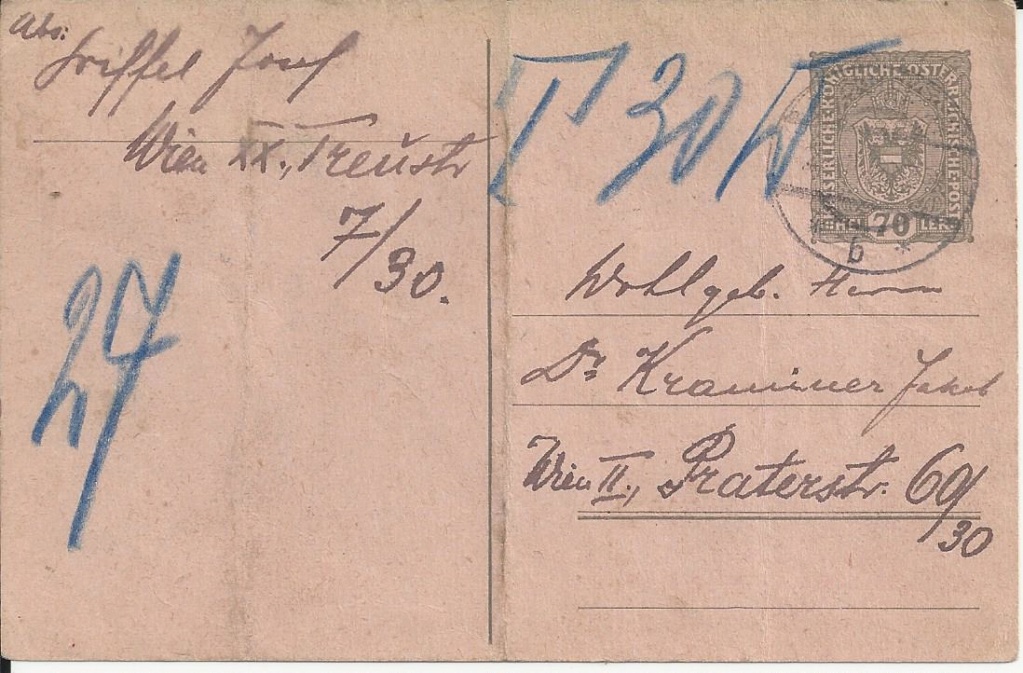 Abs:
Josef
Wien XX., Treustr
7/30.
27
T 30 h
KAISERLICHE KÖNIGLICHE ÖSTERREICHISCHE POST
HELLER 70 HELLER
6 *
Wohlgeb. Herrn
Dr Kramminer Jakob
Wien II., Praterstr. 69/
30